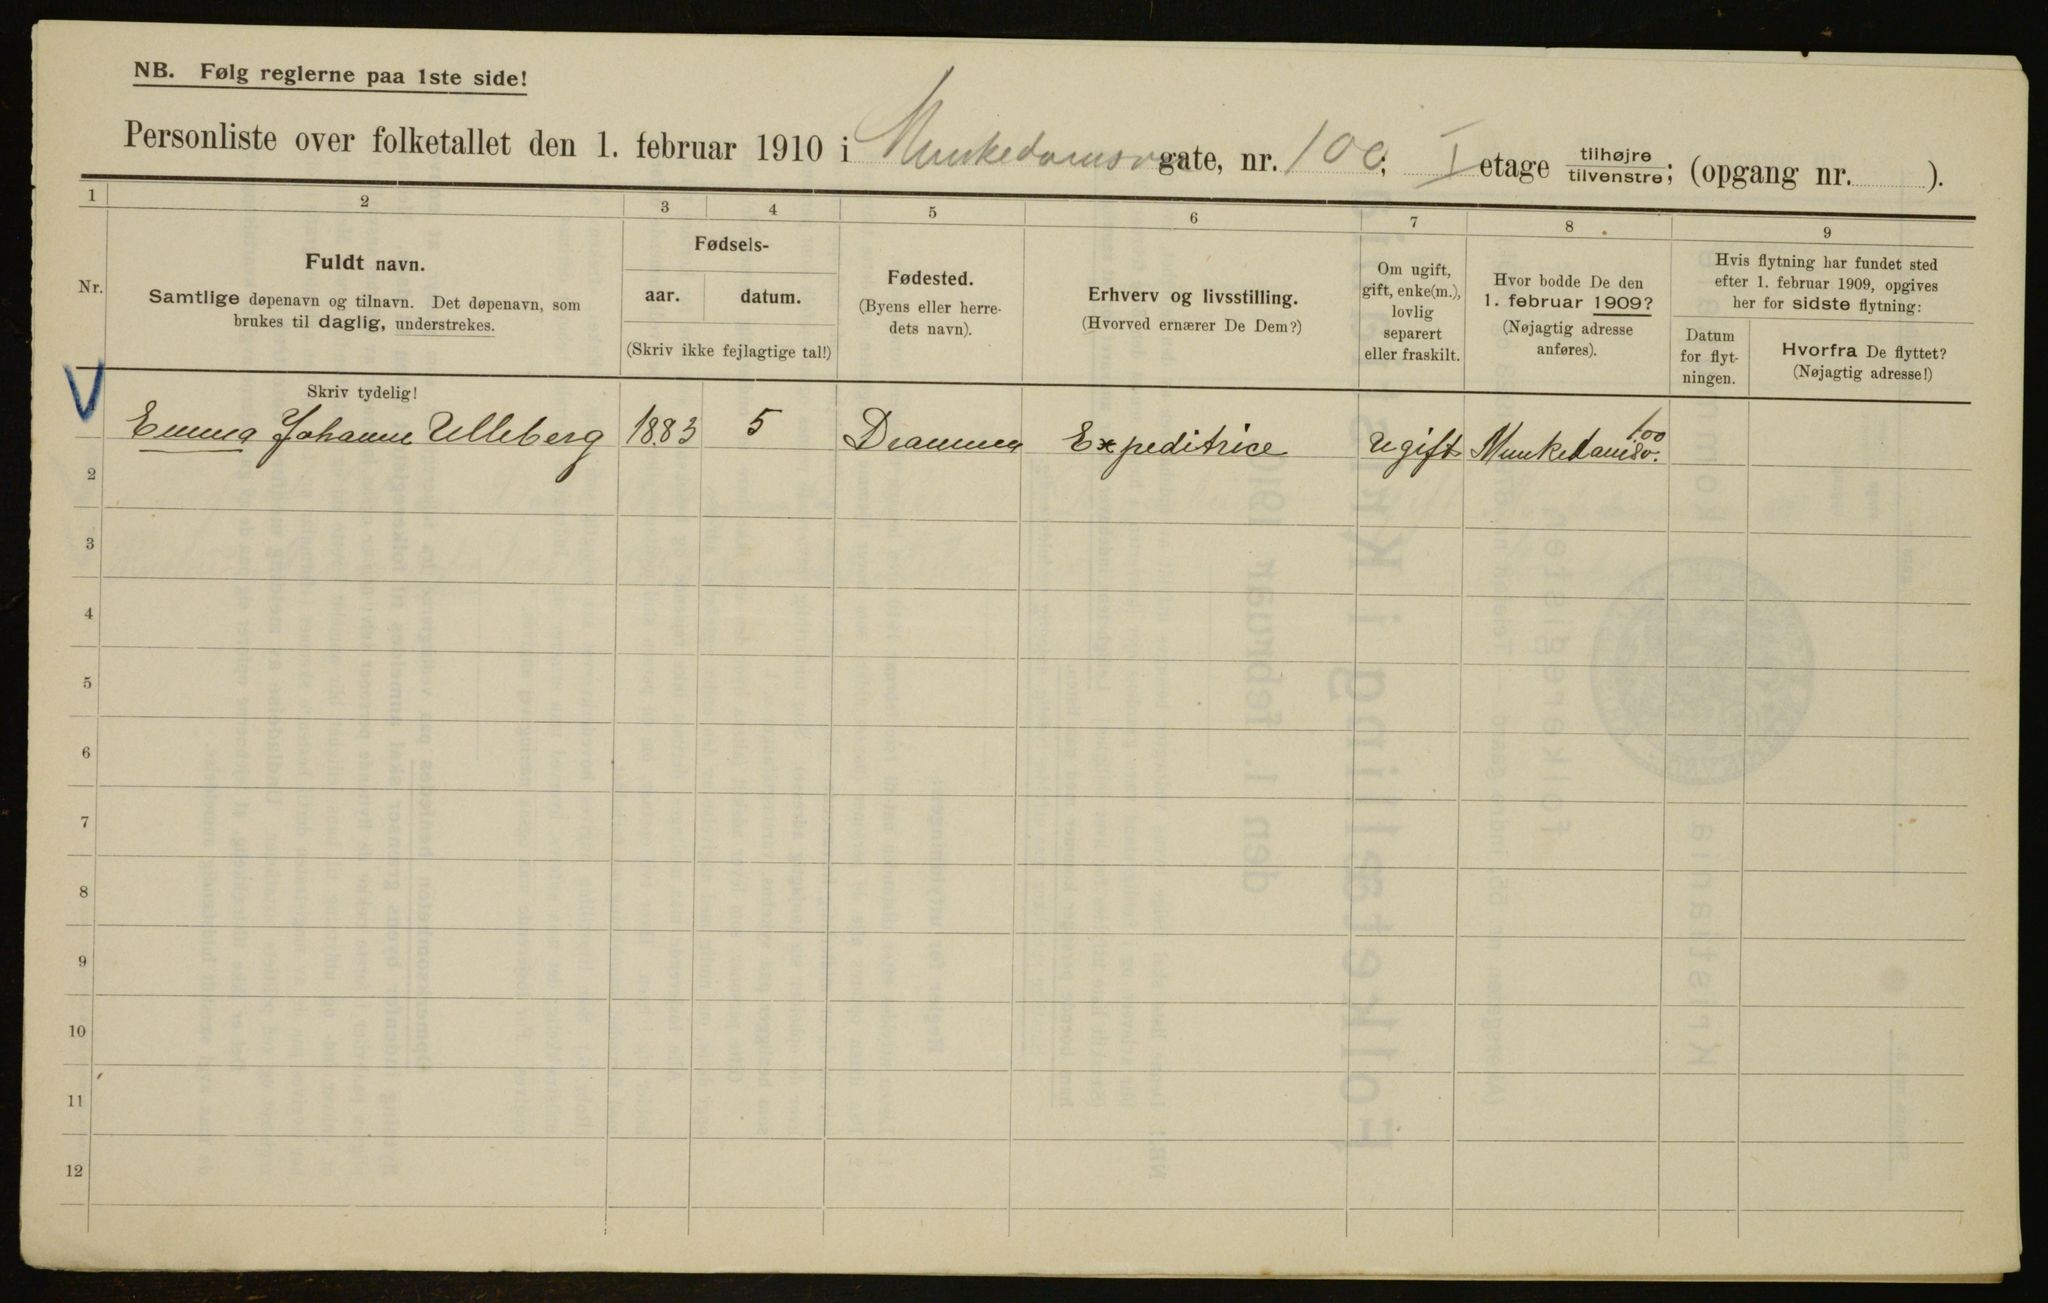 NB. Følg reglerne paa 1ste side!
Personliste over folketallet den 1. februar 1910 i Munkedamsv gate, nr. 100; I etage tilhøjre tilvenstre; (opgang nr. ).
1 2 3 4 5 6 7 8 9
Nr.
Fuldt navn.
Samtlige døpenavn og tilnavn. Det døpenavn, som
brukes til daglig, understrekes.
Fødsels-
aar. datum.
(Skriv ikke fejlagtige tal!)
Fødested.
(Byens eller herre-
dets navn).
Erhverv og livsstilling.
(Hvorved ernærer De Dem?)
Om ugift,
gift, enke(m.),
lovlig
separert
eller fraskilt.
Hvor bodde De den
1. februar 1909?
(Nøjagtig adresse
anføres).
Hvis flytning har fundet sted
efter 1. februar 1909, opgives
her for sidste flytning:
Datum
for flyt-
ningen.
Hvorfra De flyttet?
(Nøjagtig adresse!)
Skriv tydelig!
V Emma Johanne Ulleberg 1883 5 Drammen Expeditrice Ugift Munkedamsv. 100
2
3
4
5
6
7
8
9
10
11
12